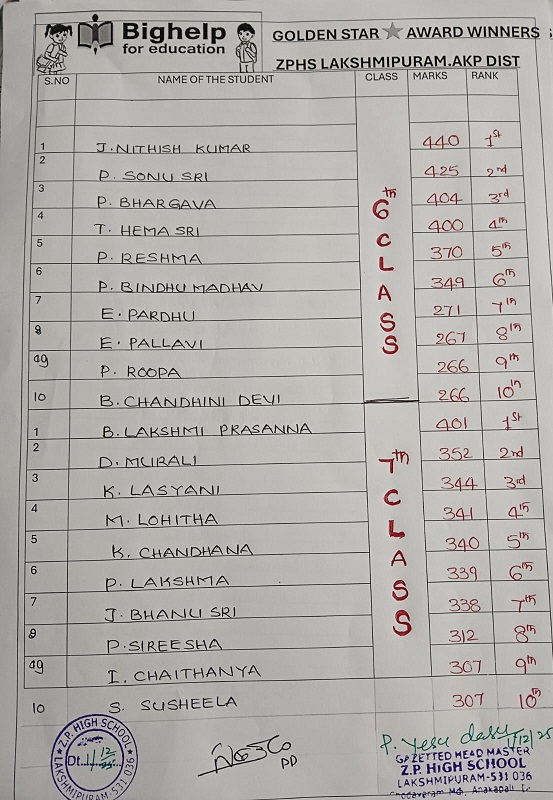 Bighelp
for education
GOLDEN STAR ★ AWARD WINNERS
ZPHS LAKSHMIPURAM.AKP DIST
S.NO NAME OF THE STUDENT CLASS MARKS RANK
6th CLASS
1 J.NITHISH KUMAR 440 1st
2 P. SONU SRI 425 2nd
3 P. BHARGAVA 404 3rd
4 T. HEMA SRI 400 4th
5 P. RESHMA 370 5th
6 P. BINDHU MADHAV 349 6th
7 E. PARDHU 271 7th
8 E. PALLAVI 267 8th
09 P. ROOPA 266 9th
10 B. CHANDHINI DEVI 266 10th
7th CLASS
1 B. LAKSHMI PRASANNA 401 1st
2 D. MURALI 352 2nd
3 K. LASYANI 344 3rd
4 M. LOHITHA 341 4th
5 K. CHANDHANA 340 5th
6 P. LAKSHMA 339 6th
7 J. BHANU SRI 338 7th
8 P. SIREESHA 312 8th
09 I. CHAITHANYA 307 9th
10 S. SUSHEELA 307 10th
Z.P. HIGH SCHOOL
Dt.
LAKSHMIPURAM-531 036
PD
P. Yesu dasu
1/12/25
GAZETTED HEAD MASTER
Z.P. HIGH SCHOOL
LAKSHMIPURAM-531 036